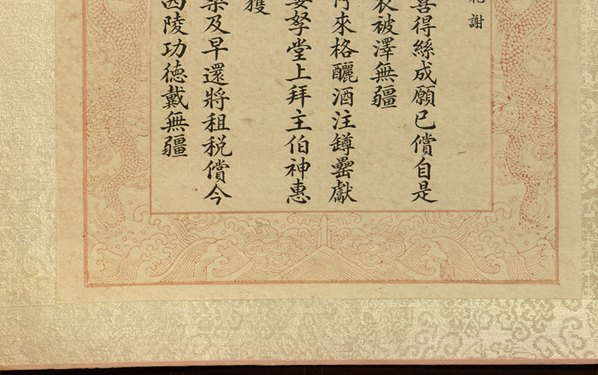 謝
喜得絲成願已償自是
衣被澤無疆
來格釃酒注罇罍獻
妻孥堂上拜主伯神惠
獲
築及早還將租税償今
西陵功德戴無疆